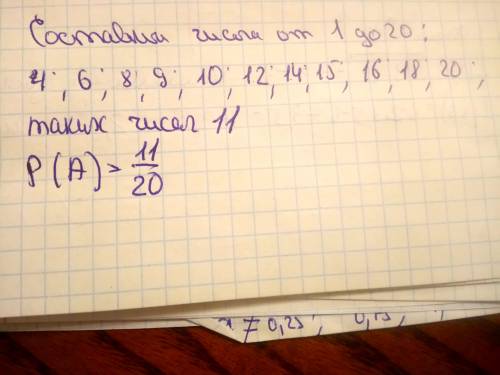 Составные числа от 1 до 20:
4; 6; 8; 9; 10; 12; 14; 15; 16; 18; 20;
таких чисел 11
P(A) = 11/20
≠ 0,25;